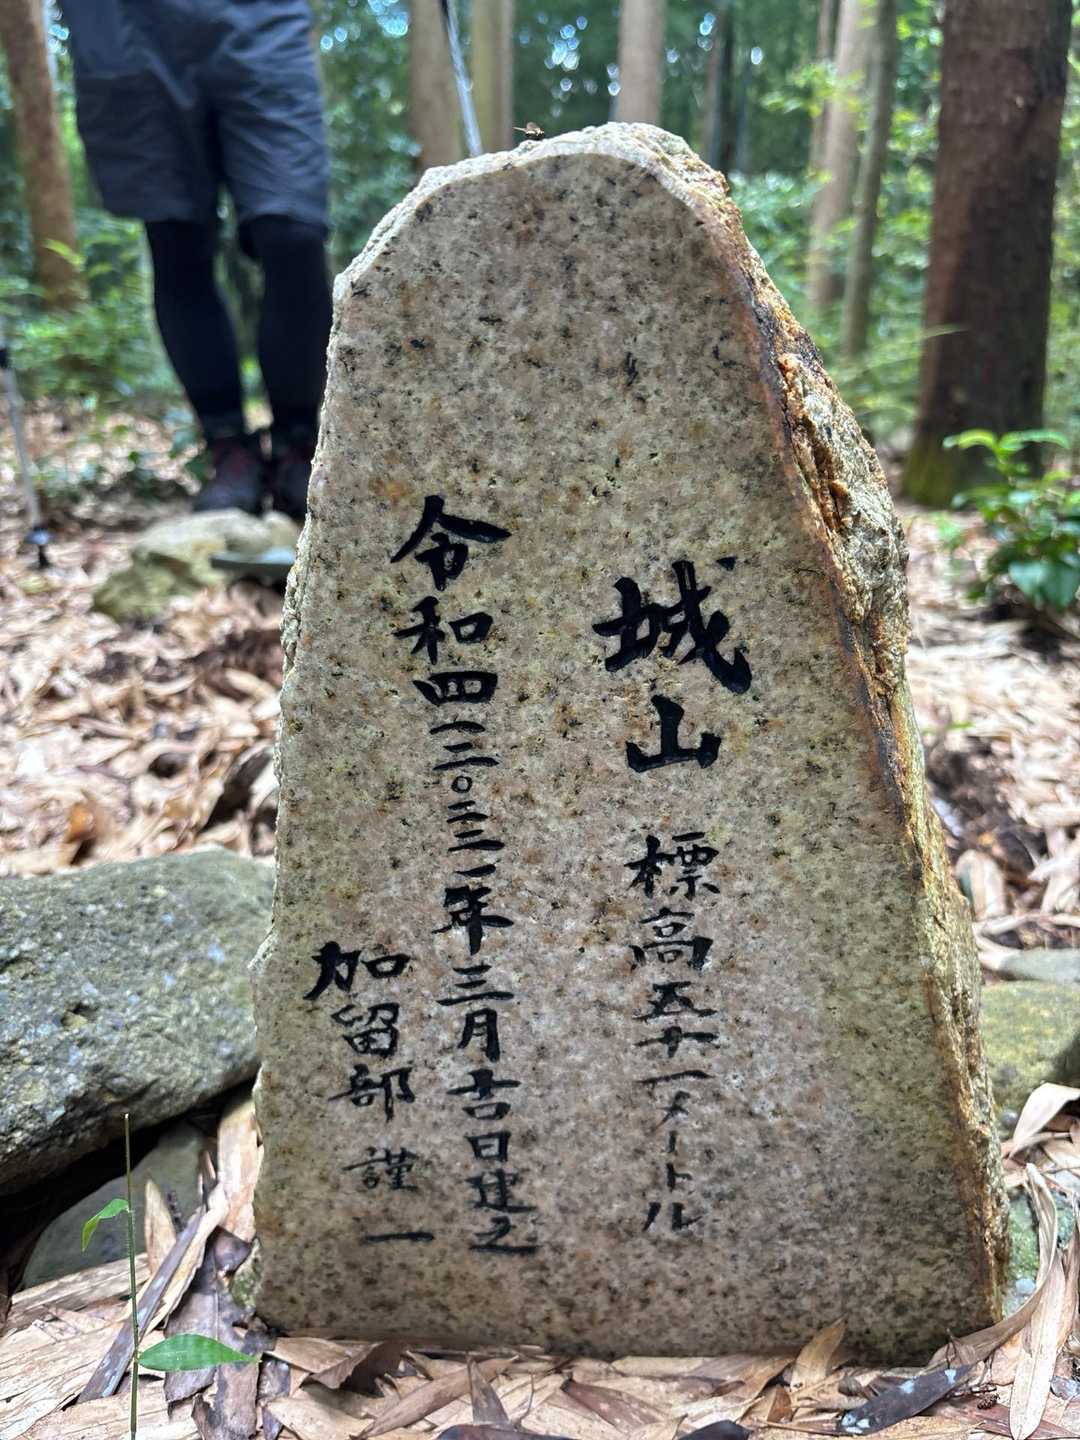 城山 標高五十一メートル
令和四(二〇二二)年三月吉日建之
加留部 謹一